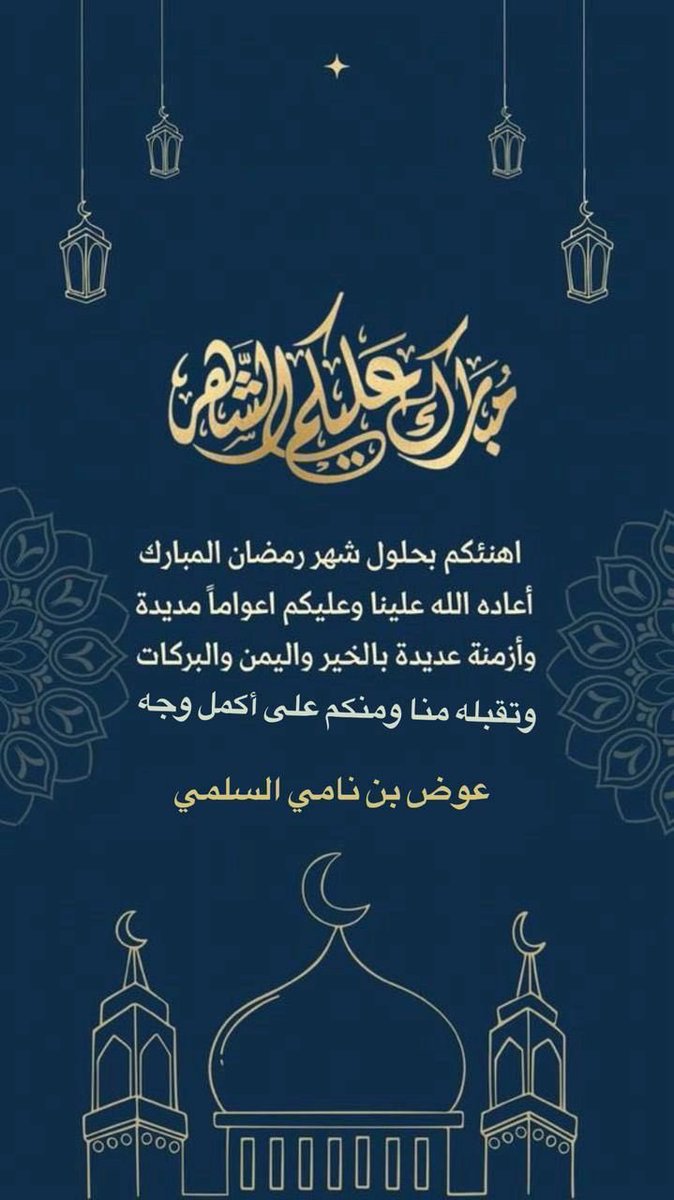 مُبَارَك عَليكم الشَّهر
اهنئكم بحلول شهر رمضان المبارك
أعاده الله علينا وعليكم اعواماً مديدة
وأزمنة عديدة بالخير واليمن والبركات
وتقبله منا ومنكم على أكمل وجه
عوض بن نامي السلمي